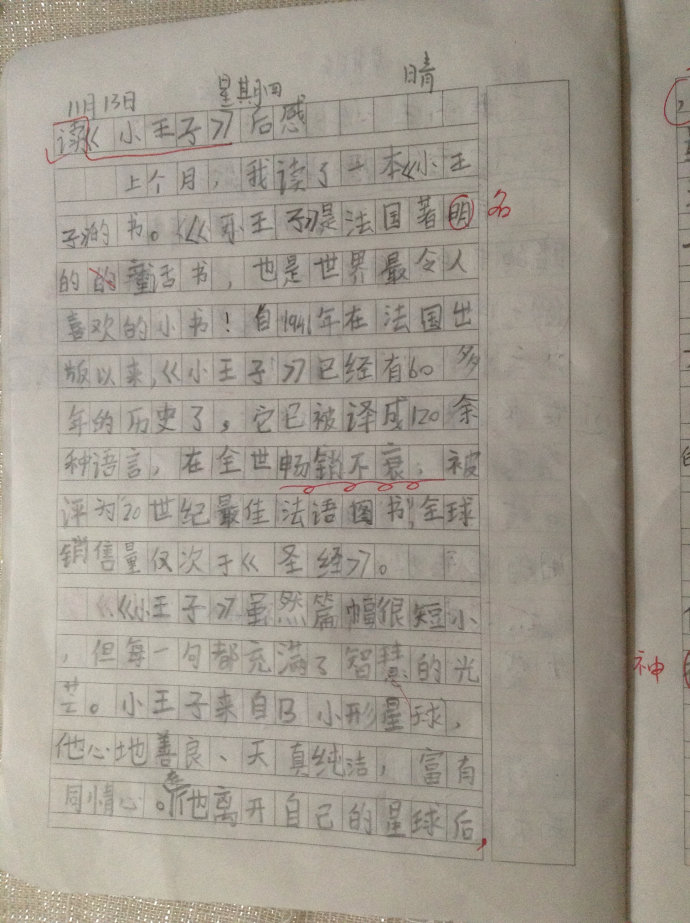 11月13日 星期四 晴
读《小王子》后感
上个月，我读了一本《小王
子》的书。《《小王子》是法国著明 名
的的童话书，也是世界最令人
喜欢的小书！自1941年在法国出
版以来，《小王子》已经有60多
年的历史了，它已被译成120余
种语言，在全世畅销不衰，被
评为"20世纪最佳法语图书"全球
销售量仅次于《圣经》。
《《小王子》虽然篇幅很短小
，但每一句都充满了智慧的光
芒。小王子来自B小形星球，
他心地善良、天真纯洁，富有
同情心。他离开自己的星球后，
神